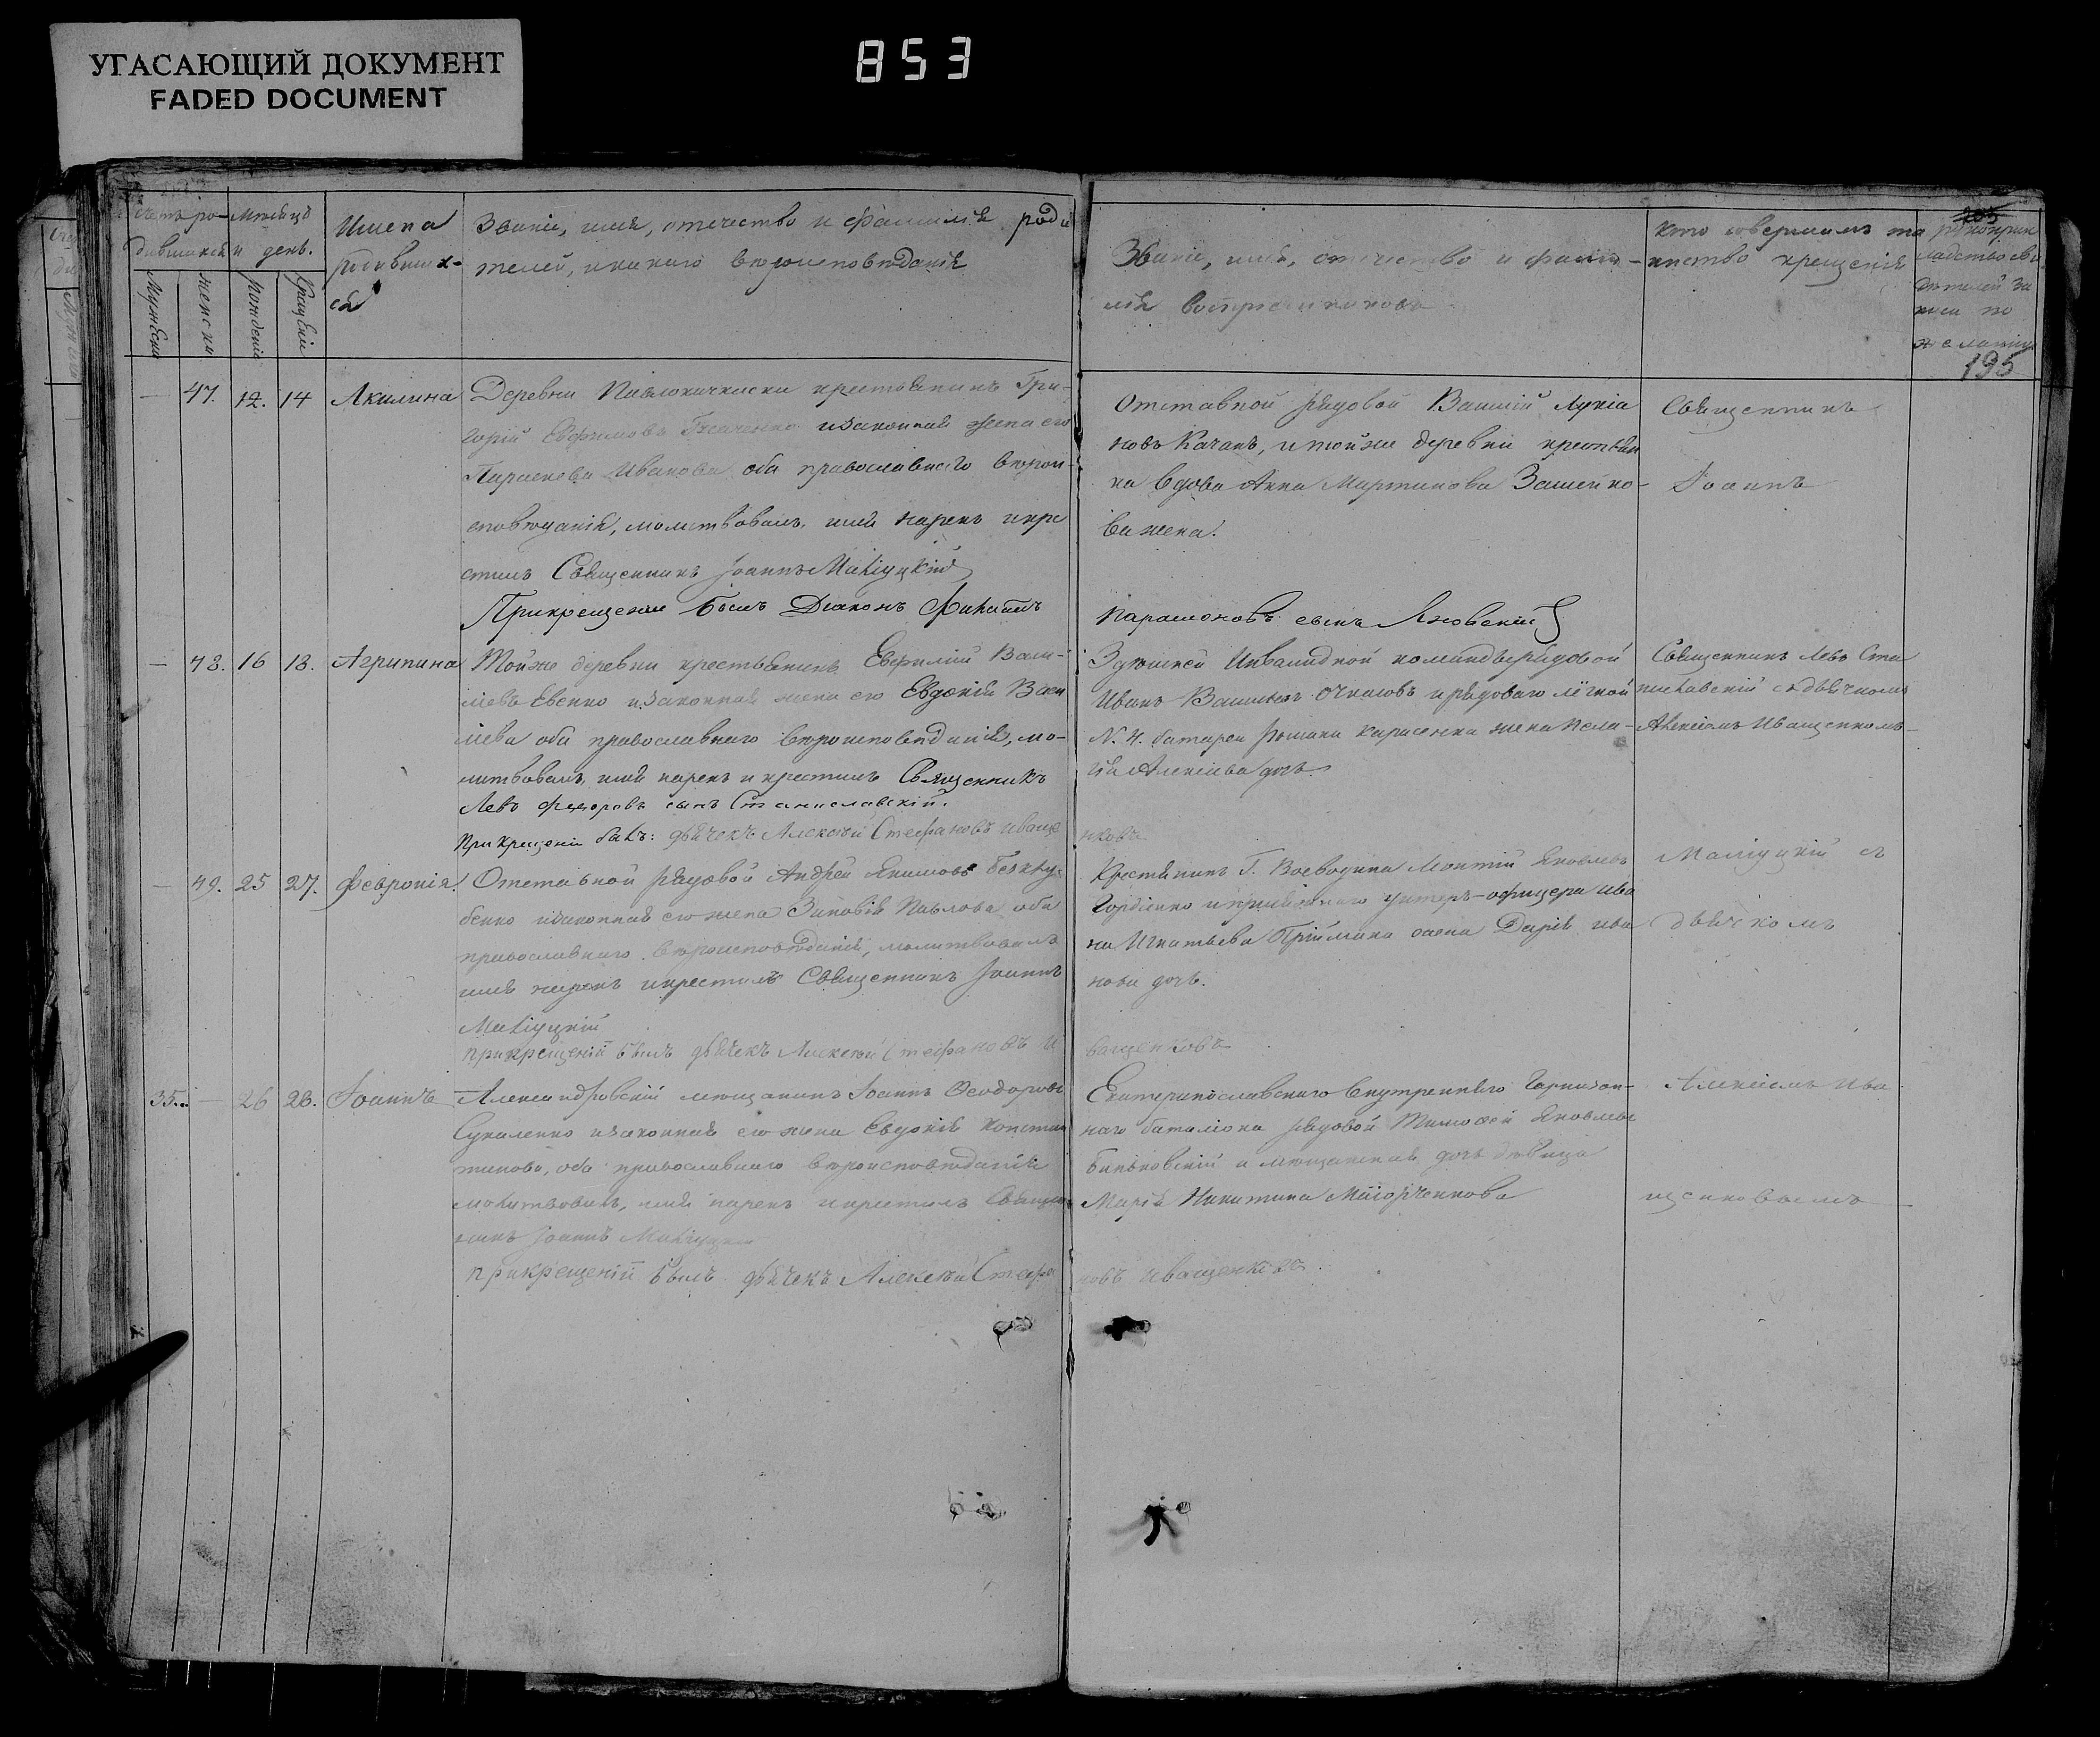 УГАСАЮЩИЙ ДОКУМЕНТ
FADED DOCUMENT
853
205
195
Счетъ ро-
дившихся
Мѣсяцъ
и день.
Мужескъ
женскъ
рожденія
крещенія
Имена
родивших-
ся
Званіе, имя, отечество и фамилія роди
телей, и какого вѣроисповѣданія
Званіе, имя, отечество и фами-
лія воспріемниковъ
Кто совершалъ та
инство крещенія
рукоприк
ладство сви
дѣтелей за
писи по
желанію
— 47. 12. 14 Акилина
Деревни Павлокичкаски крестьянинъ Гри-
горій Евфимовъ и законная жена его
Параскева Иванова оба православнаго вѣрои-
сповѣданія, молитвовалъ, имя нарекъ и кре
стилъ Священникъ Іоаннъ
При крещеніи былъ Діаконъ Михаилъ
Отставной рядовой Василій Лукіа
новъ Качанъ, и тойже деревни крестьян
ка вдова Анна Мартинова
жена.
Парамоновъ сынъ Яновскій
Священникъ
Іоаннъ
— 48. 16 18. Агрипина
Тойже деревни крестьянинъ Евфимій Васи-
ліевъ Евенко и законная жена его Евдокія Васи
ліева оба православнаго вѣроисповѣданія, мо-
литвовалъ, имя нарекъ и крестилъ Священникъ
Левъ Федоровъ сынъ Станиславскій.
При крещеніи былъ: дьячекъ Алексѣй Стефановъ Иваще
нковъ
Здѣшней Инвалидной команды рядовой
Иванъ и рядоваго лёгкой
N. 4. батареи Романа Карасенка жена Пела-
гія Алексіева дочь.
Священникъ Левъ Ста
ниславскій съ дьячкомъ
Алексіемъ Иващенкомъ
— 49. 25 27. Февронія.
Отставной рядовой Андрей Якимовъ
бенко и законная его жена Зиновія Павлова оба
православнаго вѣроисповѣданія, молитвовалъ
имя нарекъ и крестилъ Священникъ Іоаннъ
При крещеніи былъ дьячекъ Алексѣй Стефановъ И
ващенковъ
Крестянинъ Г. Воеводина Леонтій Яковлевъ
Гордіенко и унтеръ-офицера Ива
на Игнатьева жена Дарія Ива
нова дочь.
съ
дьячкомъ
35. — 26 28. Іоаннъ
Александровскій мѣщанинъ Іоаннъ Ѳеодоровъ
Сукаленко и законная его жена Евдокія Констан
тинова, оба православнаго вѣроисповѣданія
молитвовалъ, имя нарекъ и крестилъ Священ
никъ Іоаннъ
При крещеніи былъ дьячекъ Алексѣй Стефа
новъ Иващенковъ.
Екатеринославскаго внутренняго Гарнизон-
наго баталіона рядовой Тимофей Яковлевъ
и мѣщанская дочь дѣвица
Марія Никитина
Алексіемъ Ива
щенковымъ